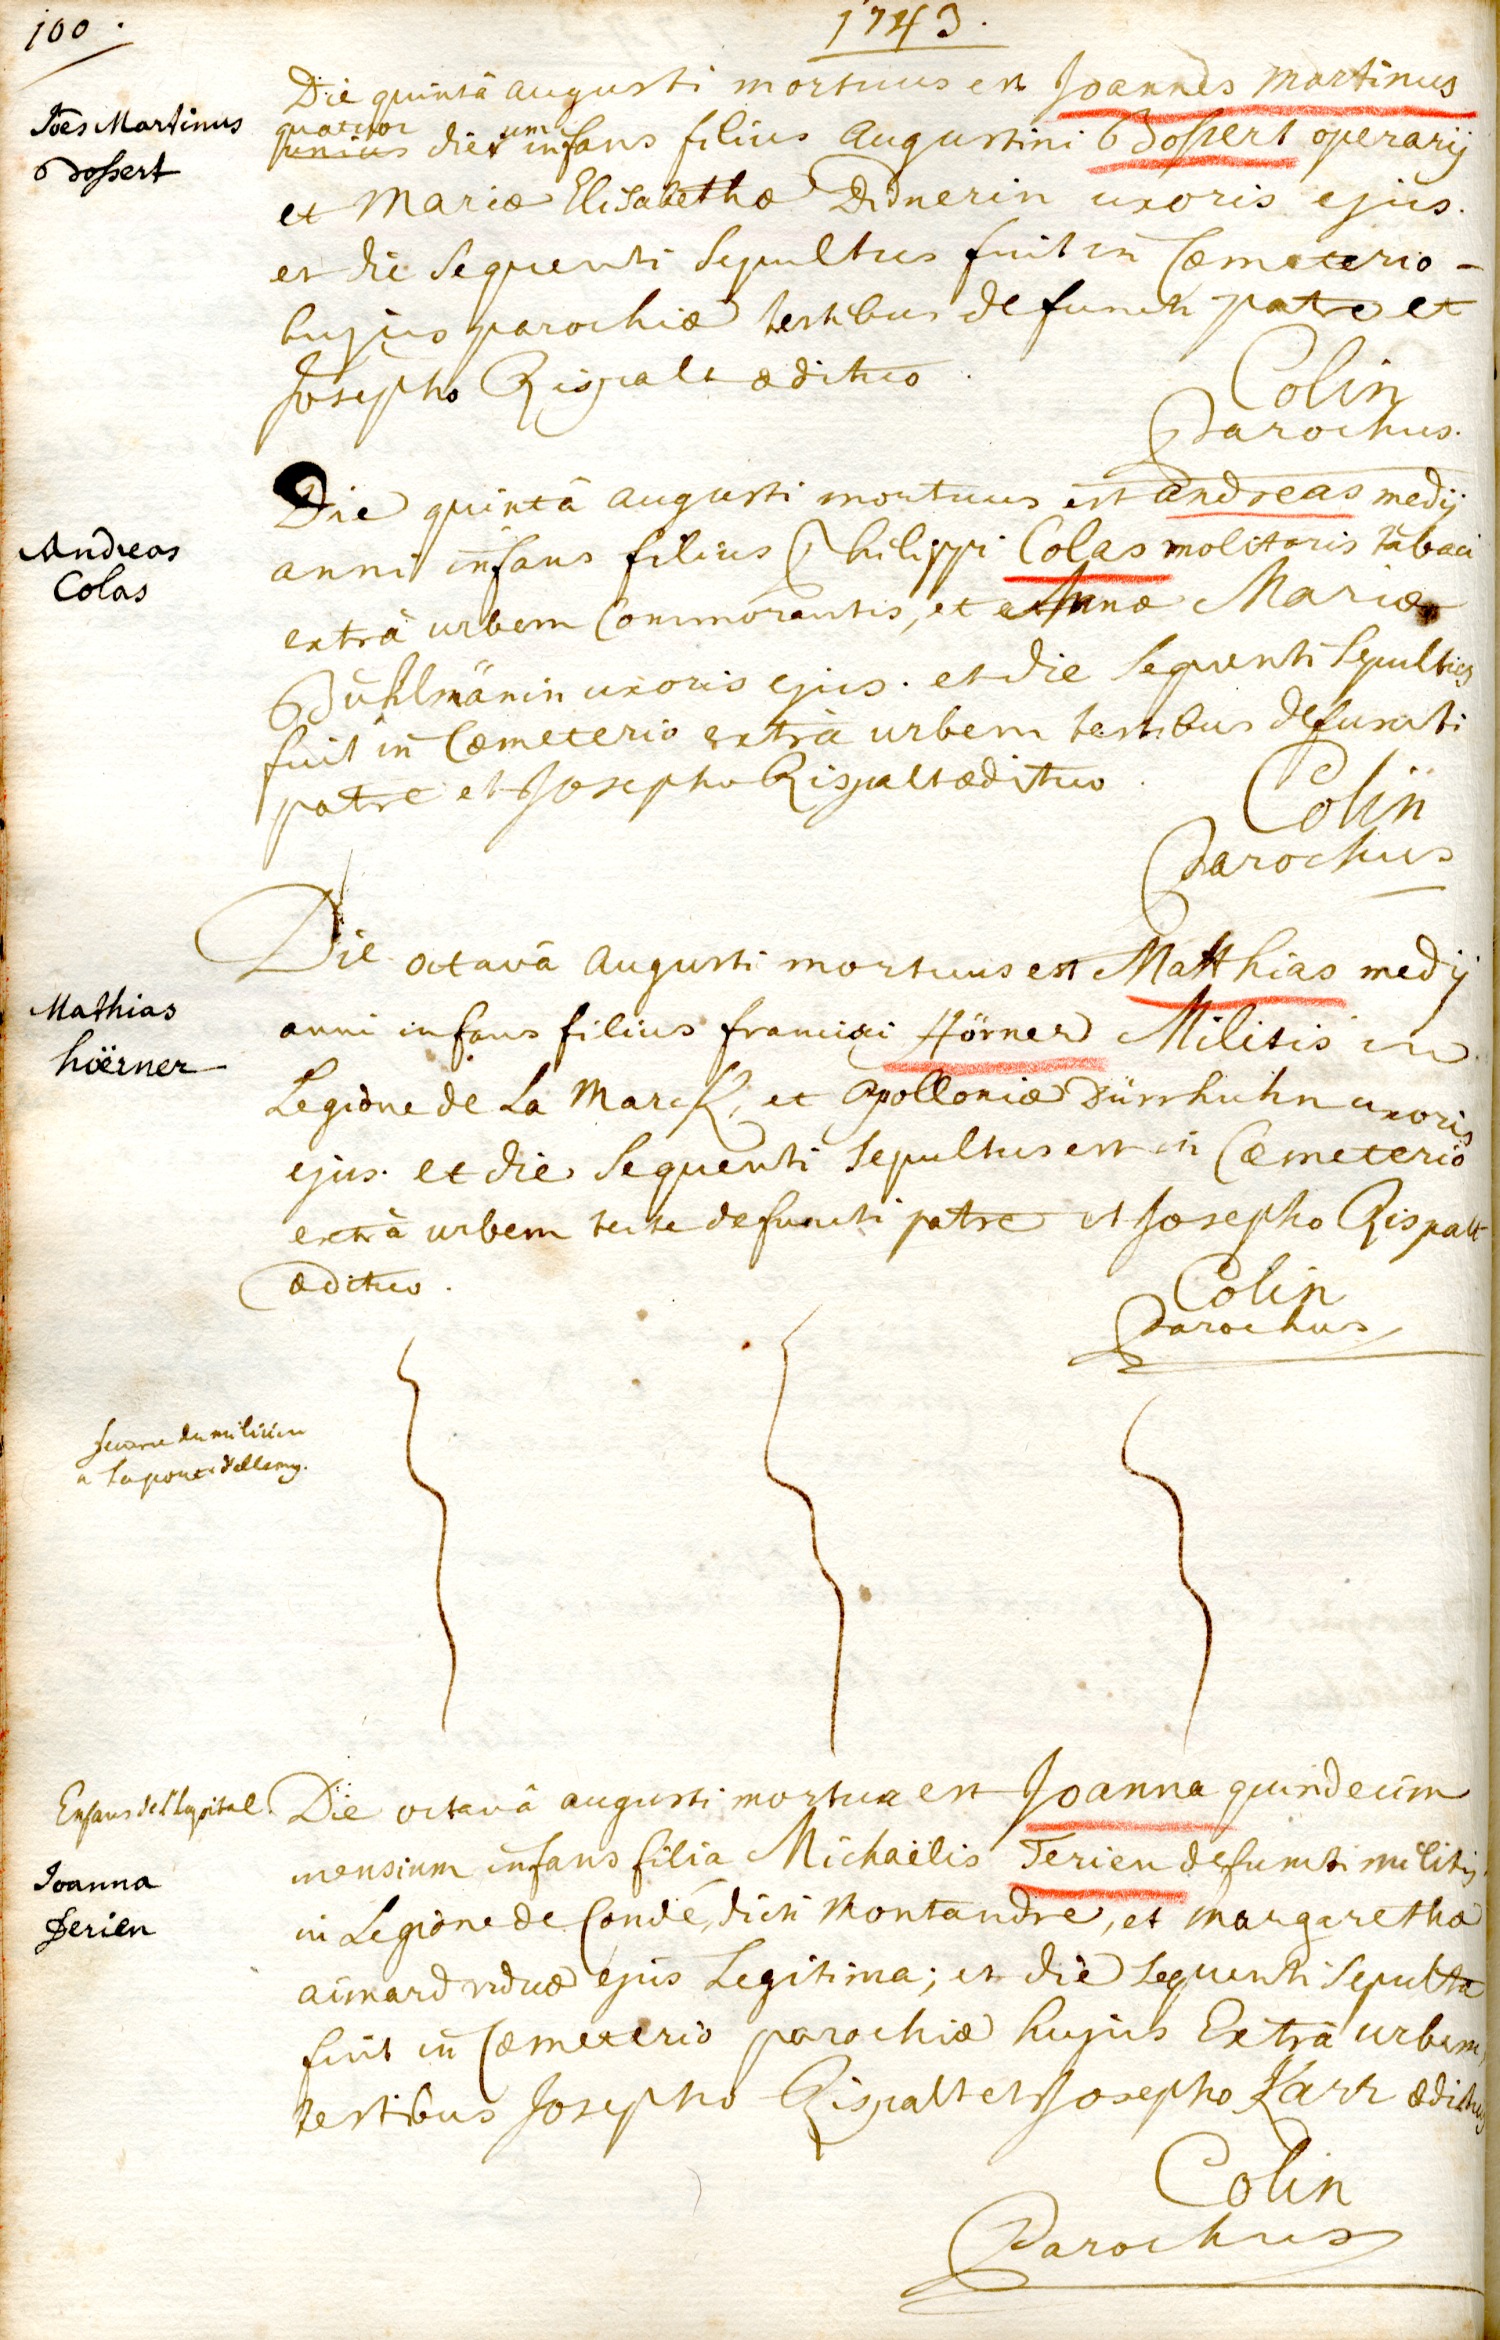 100.
1743.
Joës Martinus
Bossert
Die quintâ augusti mortuus est Joannes martinus
quatuor um
unius dier infans filius Augustini Bossert operarij
et Mariæ Elisabethæ Didnerin uxoris ejus.
et die sequenti sepultus fuit in Cœmeterio -
hujus parochiæ testibus defuncti patre et
Josepho Rispalt ædituo.
Colin
Parochus.
Andreas
Colas
Die quintâ augusti mortuus est andreas medij
anni infans filius Philippi Colas molitoris tabaci
extrà urbem Commorantis, et Annæ Mariæ
Bühlmänin uxoris ejus. et die sequenti sepultus
fuit in Cœmeterio extrà urbem testibus defuncti
patre et Josepho Rispalt ædituo.
Colin
Parochus
Mathias
hoërner
Die octavâ augusti mortuus est Matthias medij
anni infans filius francisci Hörner Militis in
Legione de La Marck, et Apolloniæ Dürrhuhn uxoris
ejus. et die sequenti sepultus est in Cœmeterio
extrà urbem teste defuncti patre et Josepho Rispalt
ædituo.
Colin
Parochus
du milicien
a la porte
Enfans de l'hopital.
Joanna
Terien
Die octavâ augusti mortua est Joanna quindecim
mensium infans filia Michaëlis Terien defuncti militis
in Legione de Condé, dicti Montandre, et margarethæ
aimard viduæ ejus Legitima; et die sequenti sepulta
fuit in Cœmeterio parochiæ hujus Extrà urbem,
testibus Josepho Rispalt et Josepho Karr ædituis
Colin
Parochus